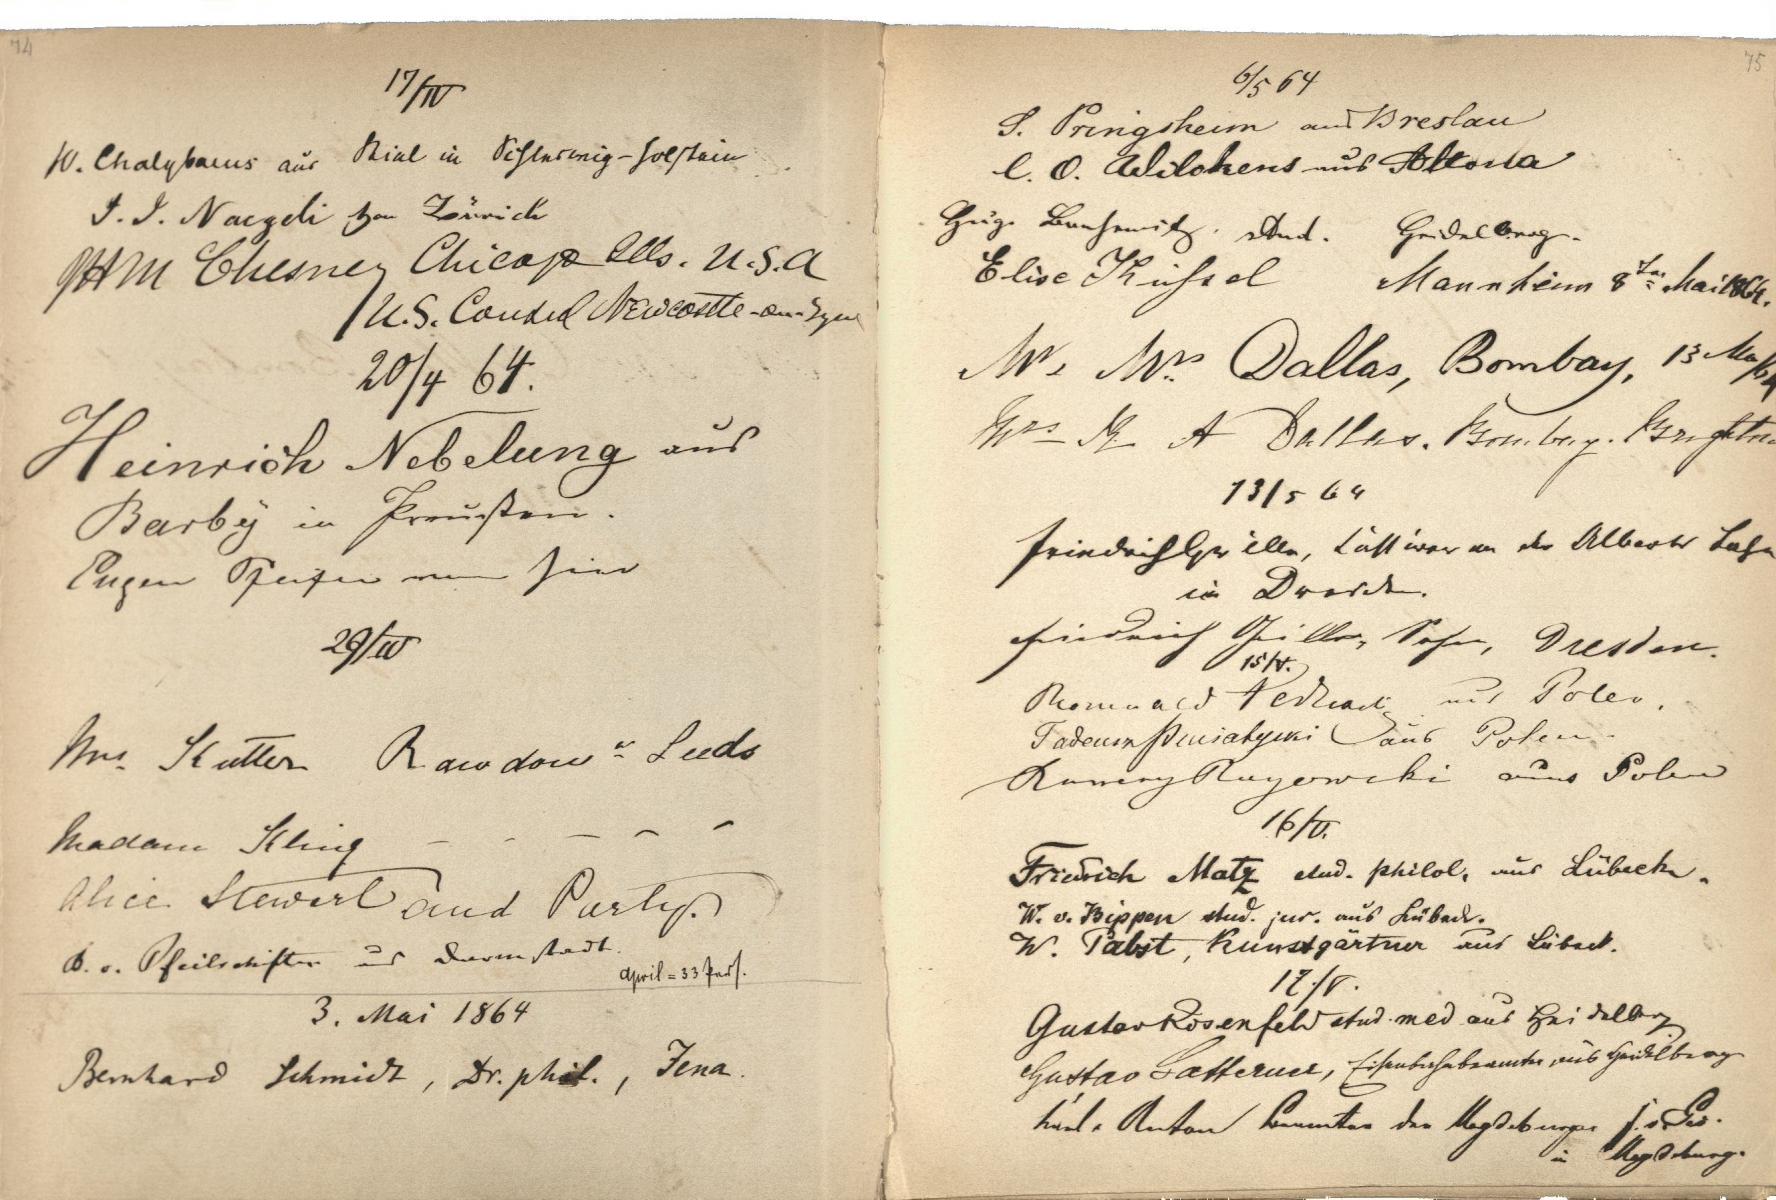 74
17/IV
W. Chalybaeus aus Kiel in Schleswig-Holstein
J. J. Naegeli von Zürich
Chesney Chicago Ills. U.S.A
U.S. Consul Newcastle-on-Tyne
20/4 64.
Heinrich Nebelung aus
Barbÿ in Preußen.
Eugen Pfeifer von hier
29/IV
Mrs Kutter Rawdon Leeds
Madam Kling
Alice Stewart and Party.
B. v. Pfeilschifter aus Darmstadt.
April = 33 Pers.
3. Mai 1864
Bernhard Schmidt, Dr. phil., Jena.
75
6/5 64
S. Pringsheim aus Breslau
C. O. Wilckens aus Altona
Hugo stud. Heidelberg.
Elise Küchel Mannheim 8ten Mai 1864.
Mr. Mrs. Dallas, Bombay, 13 May/64
Mrs A Dallas. Bombay. Brighton
13/5 64
Friedrich an der Alberts Bahn
in Dresden.
Friedrich Sohn, Dresden.
15/V.
Romuald aus Polen.
Tadeusz aus Polen.
aus Polen
16/V.
Friedrich Matz stud. philol. aus Lübeck.
W. v. Bippen stud. jur. aus Lübeck.
W. Pabst, Kunstgärtner aus Lübeck.
17/V.
Gustav Rosenfeld stud. med aus Heidelberg
Gustav Eisenbahnbeamter aus Heidelberg
Anton Beamter der Magdeburger
in Magdeburg.